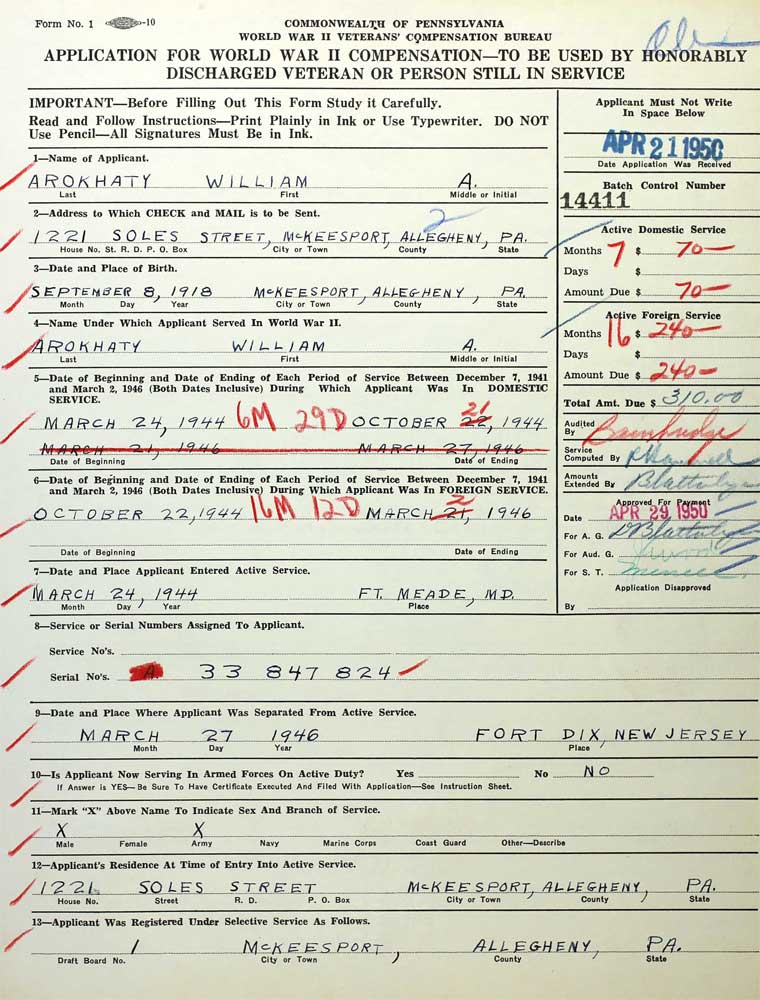 Form No. 1 -10
COMMONWEALTH OF PENNSYLVANIA
WORLD WAR II VETERANS' COMPENSATION BUREAU
APPLICATION FOR WORLD WAR II COMPENSATION—TO BE USED BY HONORABLY
DISCHARGED VETERAN OR PERSON STILL IN SERVICE
IMPORTANT—Before Filling Out This Form Study it Carefully.
Read and Follow Instructions—Print Plainly in Ink or Use Typewriter. DO NOT
Use Pencil—All Signatures Must Be in Ink.
Applicant Must Not Write
In Space Below
APR 21 1950
Date Application Was Received
Batch Control Number
14411
Active Domestic Service
Months 7 $ 70—
Days $
Amount Due $ 70—
Active Foreign Service
Months 16 $ 240—
Days $
Amount Due $ 240—
Total Amt. Due $ 310.00
Audited
By
Service
Computed By
Amounts
Extended By
Approved For Payment
Date APR 29 1950
For A. G.
For Aud. G.
For S. T.
Application Disapproved
By
1—Name of Applicant.
AROKHATY WILLIAM A.
Last First Middle or Initial
2—Address to Which CHECK and MAIL is to be Sent.
2
1221 SOLES STREET, McKEESPORT, ALLEGHENY, PA.
House No. St. R. D. P. O. Box City or Town County State
3—Date and Place of Birth.
SEPTEMBER 8, 1918 McKEESPORT, ALLEGHENY, PA.
Month Day Year City or Town County State
4—Name Under Which Applicant Served In World War II.
AROKHATY WILLIAM A.
Last First Middle or Initial
5—Date of Beginning and Date of Ending of Each Period of Service Between December 7, 1941
and March 2, 1946 (Both Dates Inclusive) During Which Applicant Was In DOMESTIC
SERVICE.
21
MARCH 24, 1944 6M 29D OCTOBER 22, 1944
MARCH 21, 1946 MARCH 27, 1946
Date of Beginning Date of Ending
6—Date of Beginning and Date of Ending of Each Period of Service Between December 7, 1941
and March 2, 1946 (Both Dates Inclusive) During Which Applicant Was In FOREIGN SERVICE.
2
OCTOBER 22, 1944 16M 12D MARCH 21, 1946
Date of Beginning Date of Ending
7—Date and Place Applicant Entered Active Service.
MARCH 24, 1944 FT. MEADE, MD.
Month Day Year Place
8—Service or Serial Numbers Assigned To Applicant.
Service No's.
Serial No's. A. 33 847 824
9—Date and Place Where Applicant Was Separated From Active Service.
MARCH 27 1946 FORT DIX, NEW JERSEY
Month Day Year Place
10—Is Applicant Now Serving In Armed Forces On Active Duty? Yes No NO
If Answer is YES—Be Sure To Have Certificate Executed And Filed With Application—See Instruction Sheet.
11—Mark "X" Above Name To Indicate Sex And Branch of Service.
X X
Male Female Army Navy Marine Corps Coast Guard Other—Describe
12—Applicant's Residence At Time of Entry Into Active Service.
1221 SOLES STREET McKEESPORT, ALLEGHENY, PA.
House No. Street R. D. P. O. Box City or Town County State
13—Applicant Was Registered Under Selective Service As Follows.
1 McKEESPORT, ALLEGHENY, PA.
Draft Board No. City or Town County State